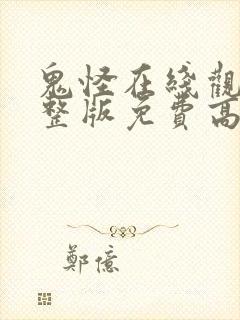 鬼怪在綫觀
整版免費高
鄭億